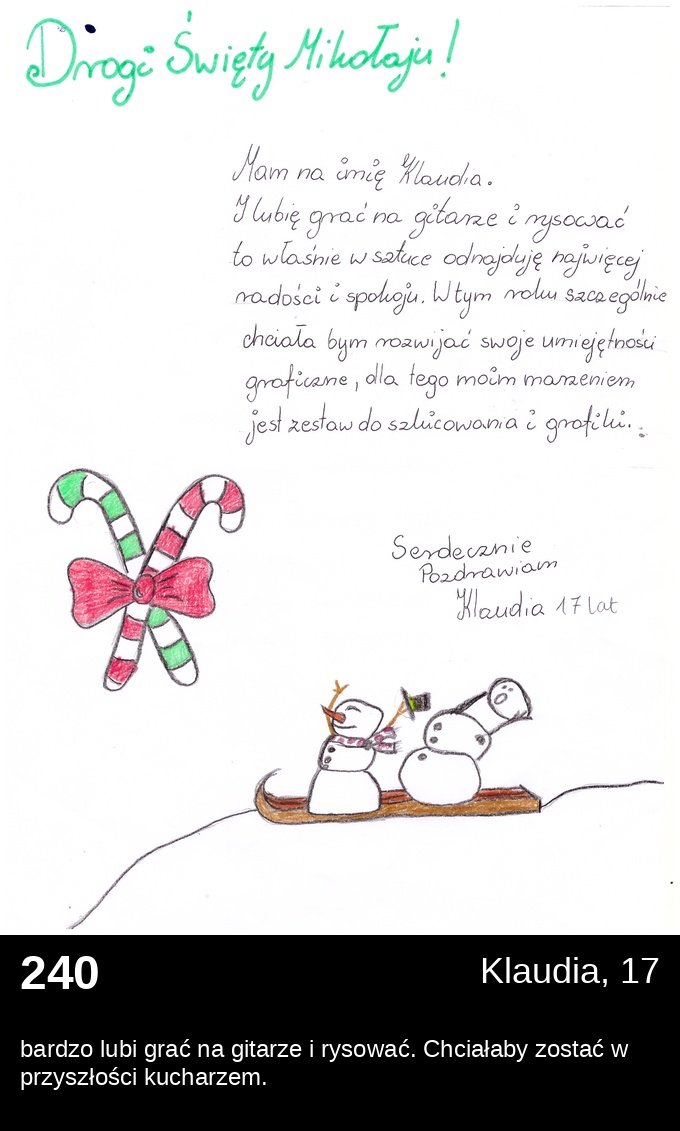 Drogi Święty Mikołaju!
Mam na imię Klaudia.
I lubię grać na gitarze i rysować
to właśnie w sztuce odnajduję najwięcej
radości i spokoju. W tym roku szczególnie
chciała bym rozwijać swoje umiejętności
graficzne, dla tego moim marzeniem
jest zestaw do szkicowania i grafiki.
Serdecznie
Pozdrawiam
Klaudia 17 lat
240
Klaudia, 17
bardzo lubi grać na gitarze i rysować. Chciałaby zostać w
przyszłości kucharzem.